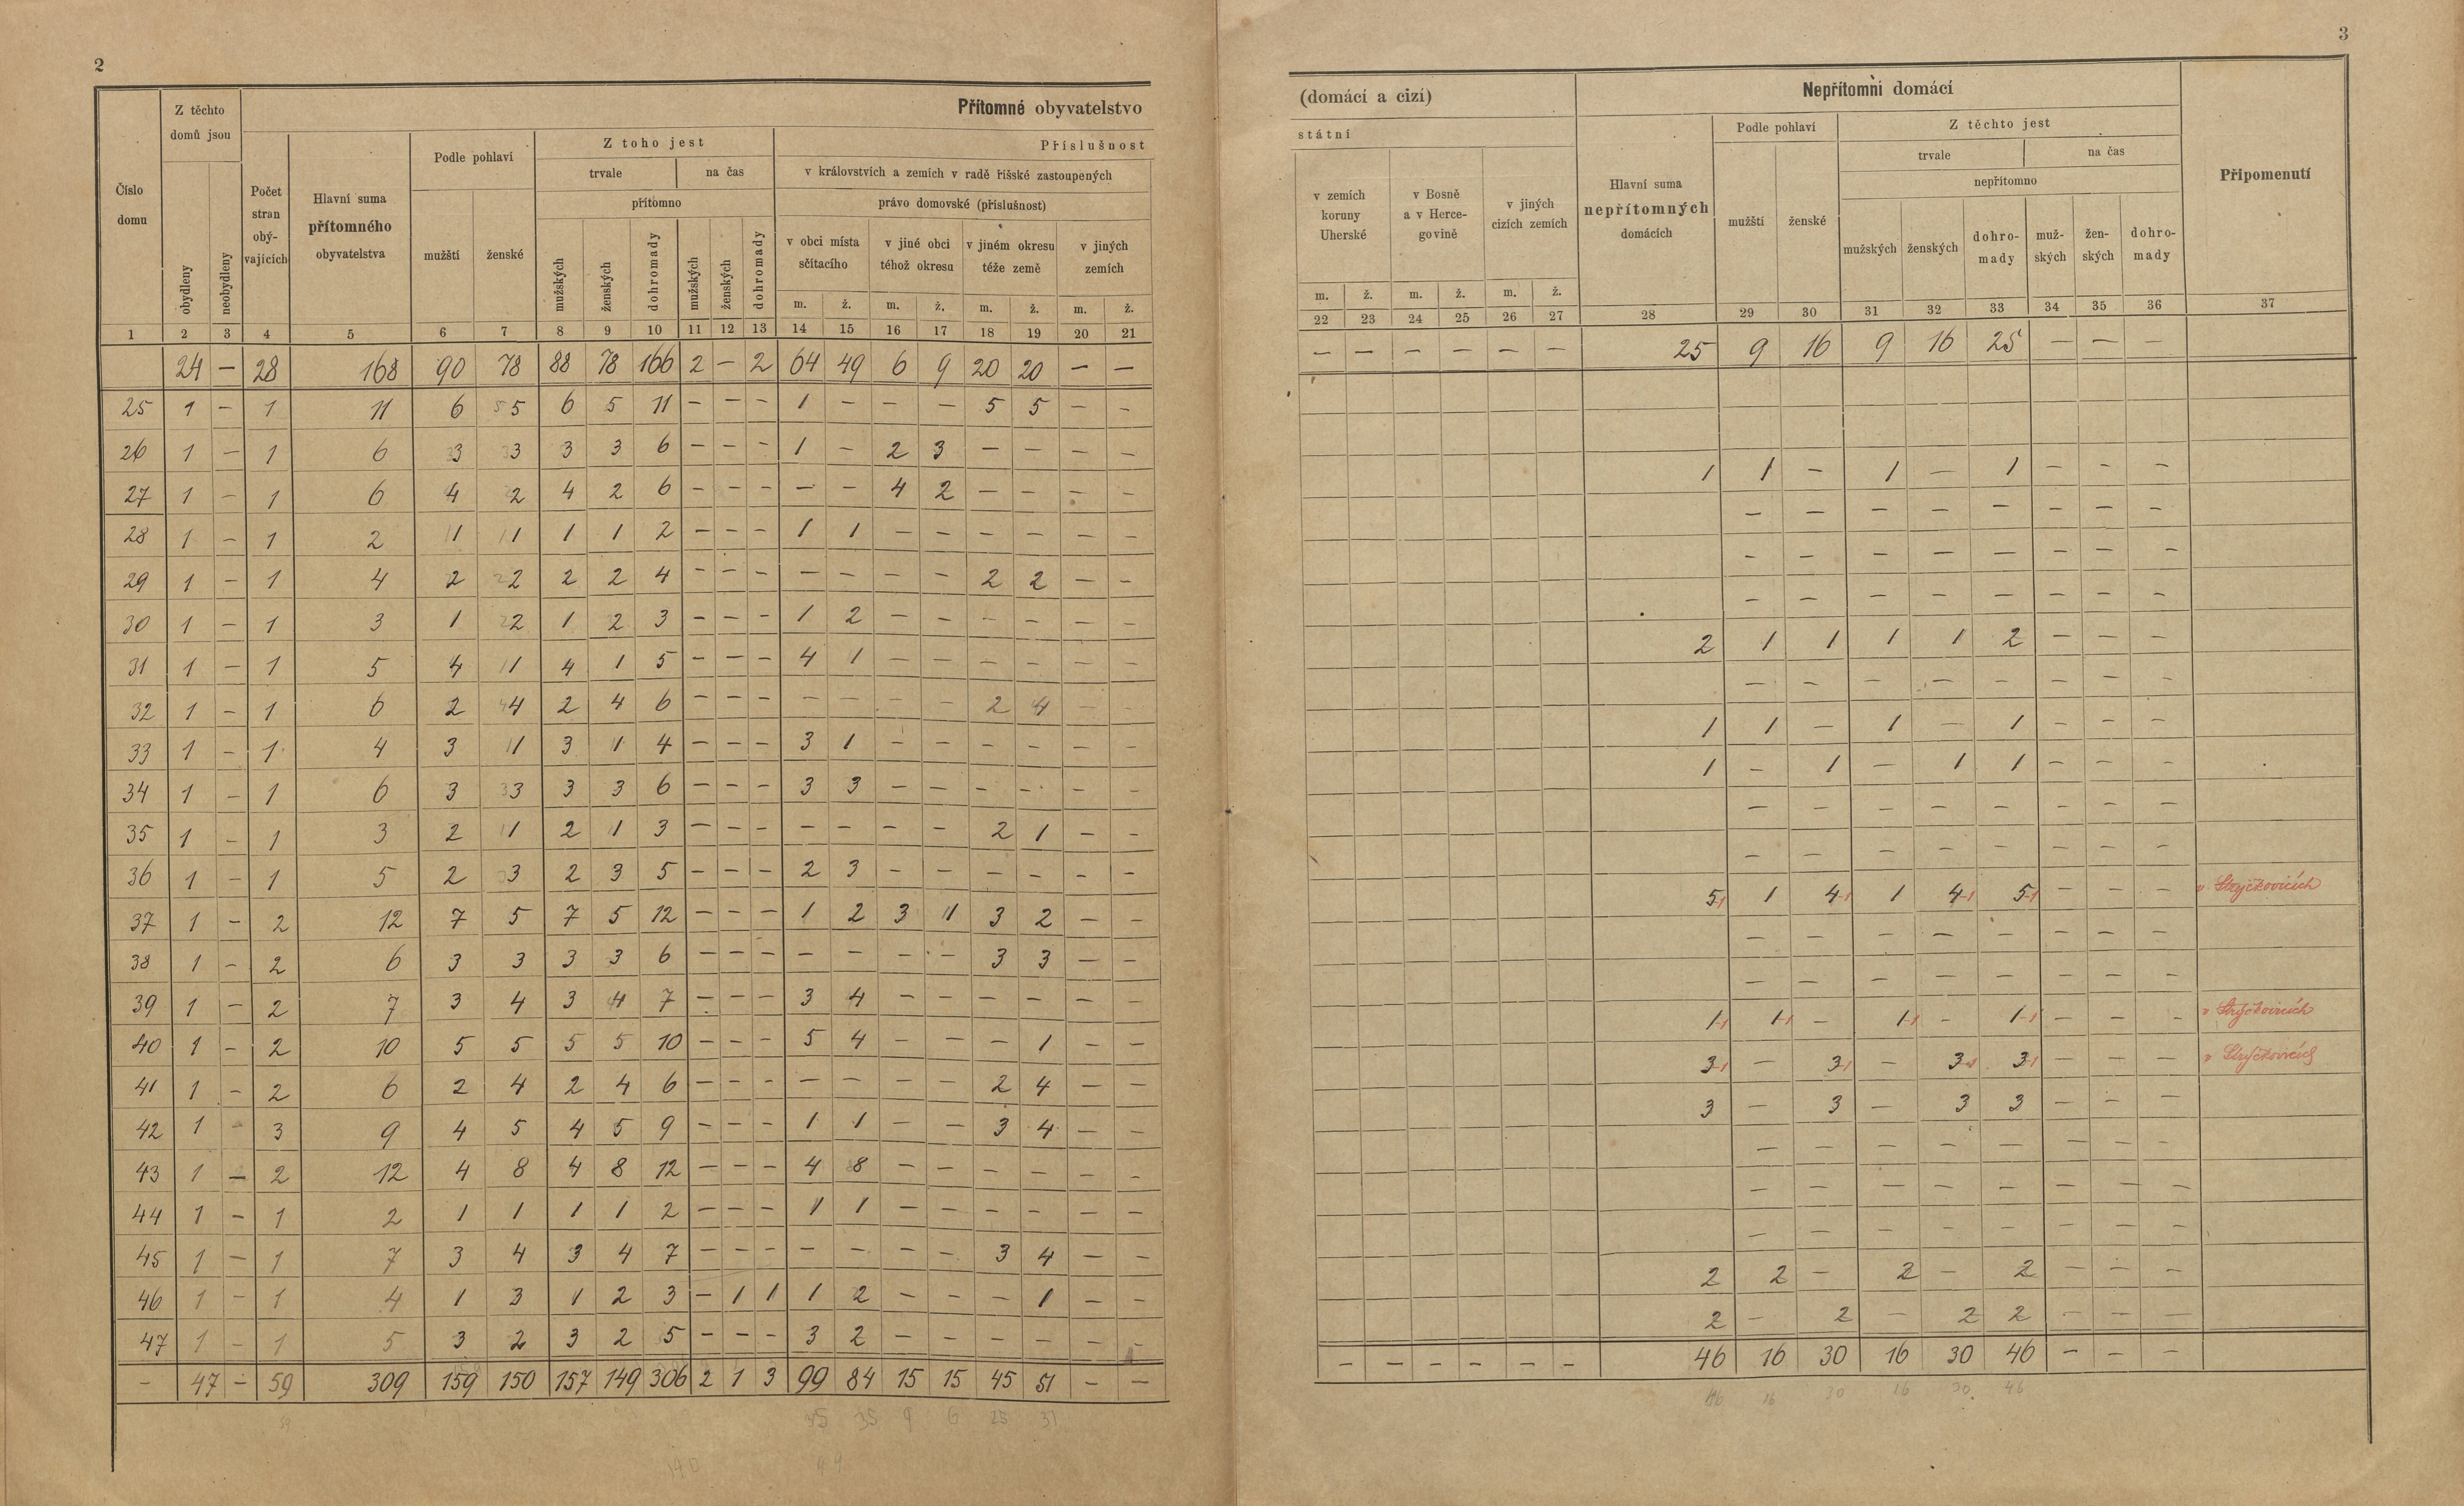 2
3
Číslo domu
Z těchto domů jsou
obydleny
neobydleny
Přítomné obyvatelstvo
(domácí a cizí)
Počet stran obývajících
Hlavní suma přítomného obyvatelstva
Podle pohlaví
mužští
ženské
Z toho jest
trvale
na čas
přítomno
mužských
ženských
dohromady
mužských
ženských
dohromady
Příslušnost
státní
v královstvích a zemích v radě říšské zastoupených
právo domovské (příslušnost)
v obci místa sčítacího
v jiné obci téhož okresu
v jiném okresu téže země
v jiných zemích
m. ž. m. ž. m. ž. m. ž.
v zemích koruny Uherské
v Bosně a v Hercegovině
v jiných cizích zemích
m. ž. m. ž. m. ž.
Nepřítomni domácí
Hlavní suma nepřítomných domácích
Podle pohlaví
mužští
ženské
Z těchto jest
trvale
na čas
nepřítomno
mužských
ženských
dohromady
mužských
ženských
dohromady
Připomenutí
1 2 3 4 5 6 7 8 9 10 11 12 13 14 15 16 17 18 19 20 21
22 23 24 25 26 27 28 29 30 31 32 33 34 35 36 37
24 – 28 168 90 78 88 78 166 2 – 2 64 49 6 9 20 20 – –
– – – – – – 25 9 16 9 16 25 – – –
25 1 – 1 11 6 5 6 5 11 – – – 1 – – – 5 5 – –
26 1 – 1 6 3 3 3 3 6 – – – 1 – 2 3 – – – –
1 1 – 1 – 1 – – –
27 1 – 1 6 4 2 4 2 6 – – – – – 4 2 – – – –
– – – – – – – –
28 1 – 1 2 1 1 1 1 2 – – – 1 1 – – – – – –
– – – – – – – –
29 1 – 1 4 2 2 2 2 4 – – – – – – – 2 2 – –
– – – – – – – –
30 1 – 1 3 1 2 1 2 3 – – – 1 2 – – – – – –
2 1 1 1 1 2 – – –
31 1 – 1 5 4 1 4 1 5 – – – 4 1 – – – – – –
– – – – – – – –
32 1 – 1 6 2 4 2 4 6 – – – – – – – 2 4 – –
1 1 – 1 – 1 – – –
33 1 – 1 4 3 1 3 1 4 – – – 3 1 – – – – – –
1 – 1 – 1 1 – – –
34 1 – 1 6 3 3 3 3 6 – – – 3 3 – – – – – –
– – – – – – – –
35 1 – 1 3 2 1 2 1 3 – – – – – – – 2 1 – –
– – – – – – – –
36 1 – 1 5 2 3 2 3 5 – – – 2 3 – – – – – –
5-1 1 4-1 1 4-1 5-1 – – – v Strýčkovicích
37 1 – 2 12 7 5 7 5 12 – – – 1 2 3 1 3 2 – –
– – – – – – – –
38 1 – 2 6 3 3 3 3 6 – – – – – – – 3 3 – –
– – – – – – – –
39 1 – 2 7 3 4 3 4 7 – – – 3 4 – – – – – –
1-1 1-1 – 1-1 – 1-1 – – – v Strýčkovicích
40 1 – 2 10 5 5 5 5 10 – – – 5 4 – – – 1 – –
3-1 – 3-1 – 3-1 3-1 – – – v Strýčkovicích
41 1 – 2 6 2 4 2 4 6 – – – – – – – 2 4 – –
3 – 3 – 3 3 – – –
42 1 – 3 9 4 5 4 5 9 – – – 1 1 – – 3 4 – –
– – – – – – – –
43 1 – 2 12 4 8 4 8 12 – – – 4 8 – – – – – –
– – – – – – – –
44 1 – 1 2 1 1 1 1 2 – – – 1 1 – – – – – –
– – – – – – – –
45 1 – 1 7 3 4 3 4 7 – – – – – – – 3 4 – –
2 2 – 2 – 2 – – –
46 1 – 1 4 1 3 1 2 3 – 1 1 1 2 – – – 1 – –
2 – 2 – 2 2 – – –
47 1 – 1 5 3 2 3 2 5 – – – 3 2 – – – – – –
– 47 – 59 309 159 150 157 149 306 2 1 3 99 84 15 15 45 51 – –
– – – – – – 46 16 30 16 30 46 – – –
59 35 35 9 6 25 31
46 16 30 16 30 46